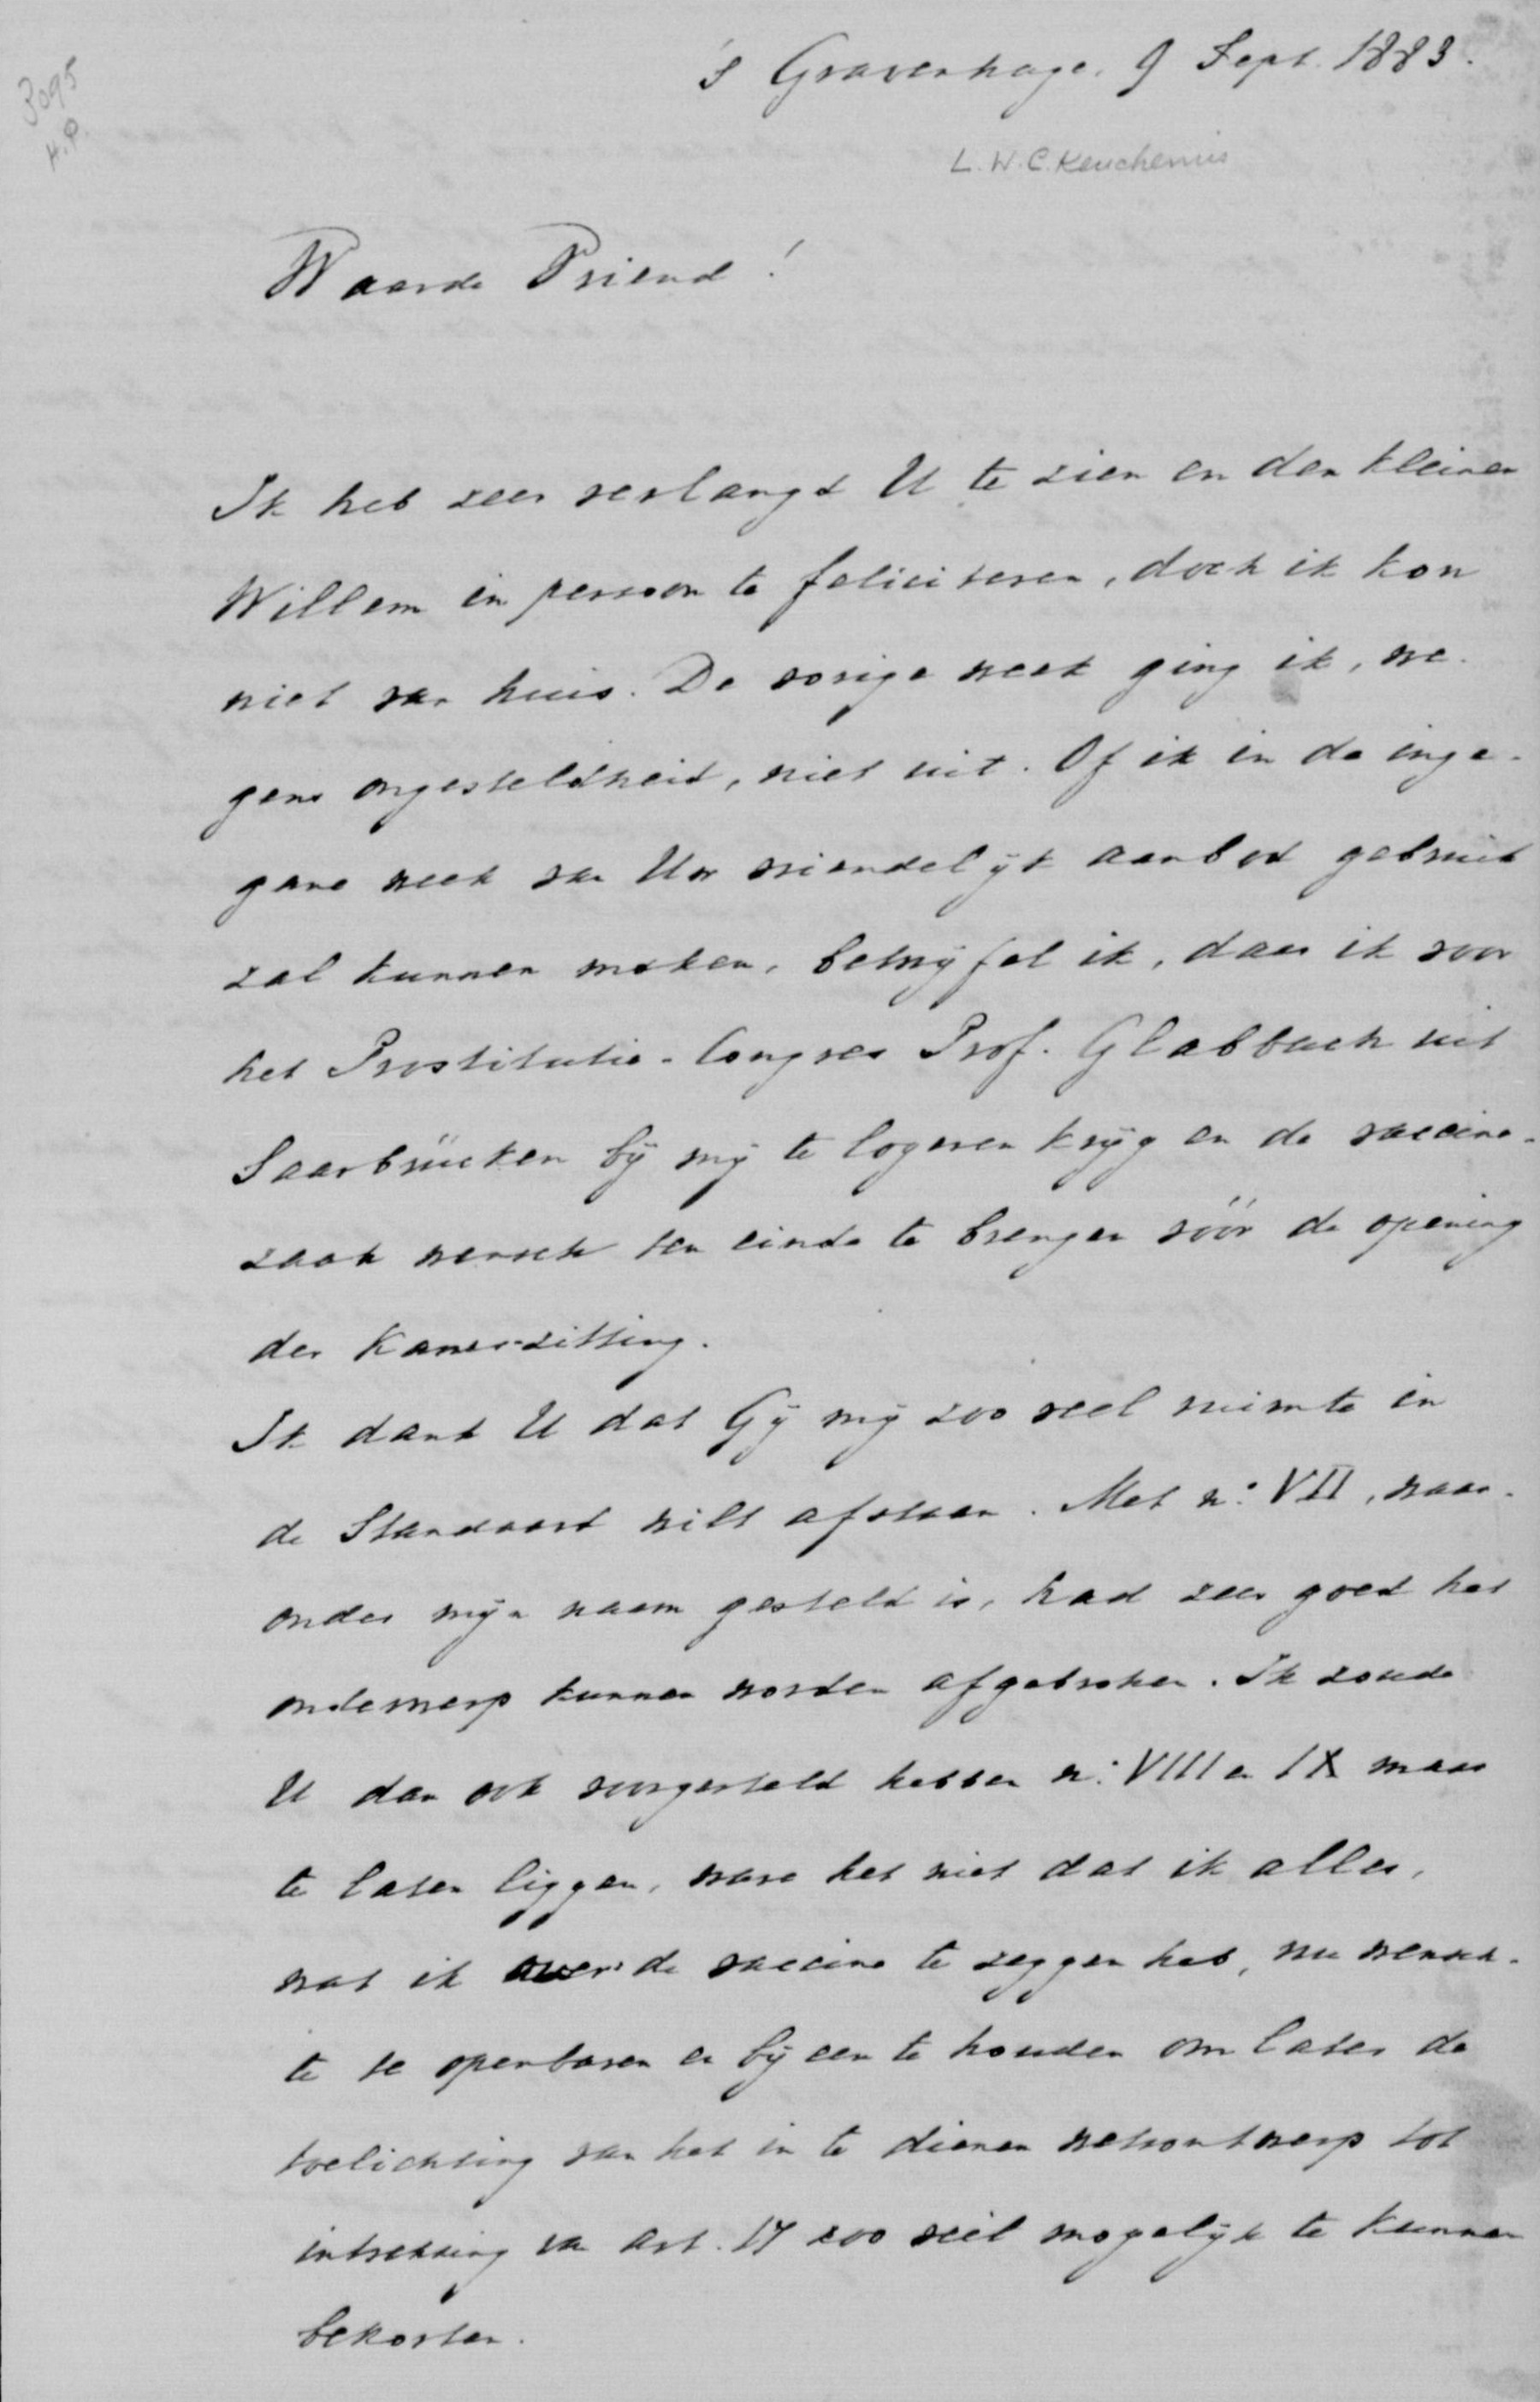 's Gravenhage. 9 Sept. 1883.
3095
H.P.
L.W.C. Keuchenius
Waarde Vriend!
Ik heb zeer verlangd U te zien en den kleinen
Willem in persoon te feliciteren, doch ik kon
niet van huis. De vorige week ging ik, we-
gens ongesteldheid, niet uit. Of ik in de inge-
gane week van Uw vriendelijk aanbod gebruik
zal kunnen maken, betwijfel ik, daar ik voor
het Prostitutie-Congres Prof. Glabbach uit
Saarbrücken bij mij te logeren krijg en de vaccine-
zaak wensch ten einde te brengen vóór de opening
der Kamer-zitting.
Ik dank U dat Gij mij zoo veel ruimte in
de Standaard wilt afstaan. Met n.º VII, waar-
onder mijn naam gesteld is, had zeer goed het
onderwerp kunnen worden afgebroken. Ik zoude
U dan ook voorgesteld hebben n.º VIII en IX maar
te laten liggen, ware het niet dat ik alles,
wat ik over de vaccine te zeggen heb, nu wensch-
te te openbaren en bijeen te houden om later de
toelichting van het in te dienen wetsontwerp tot
intrekking van art. 17 zoo veel mogelijk te kunnen
bekorten.